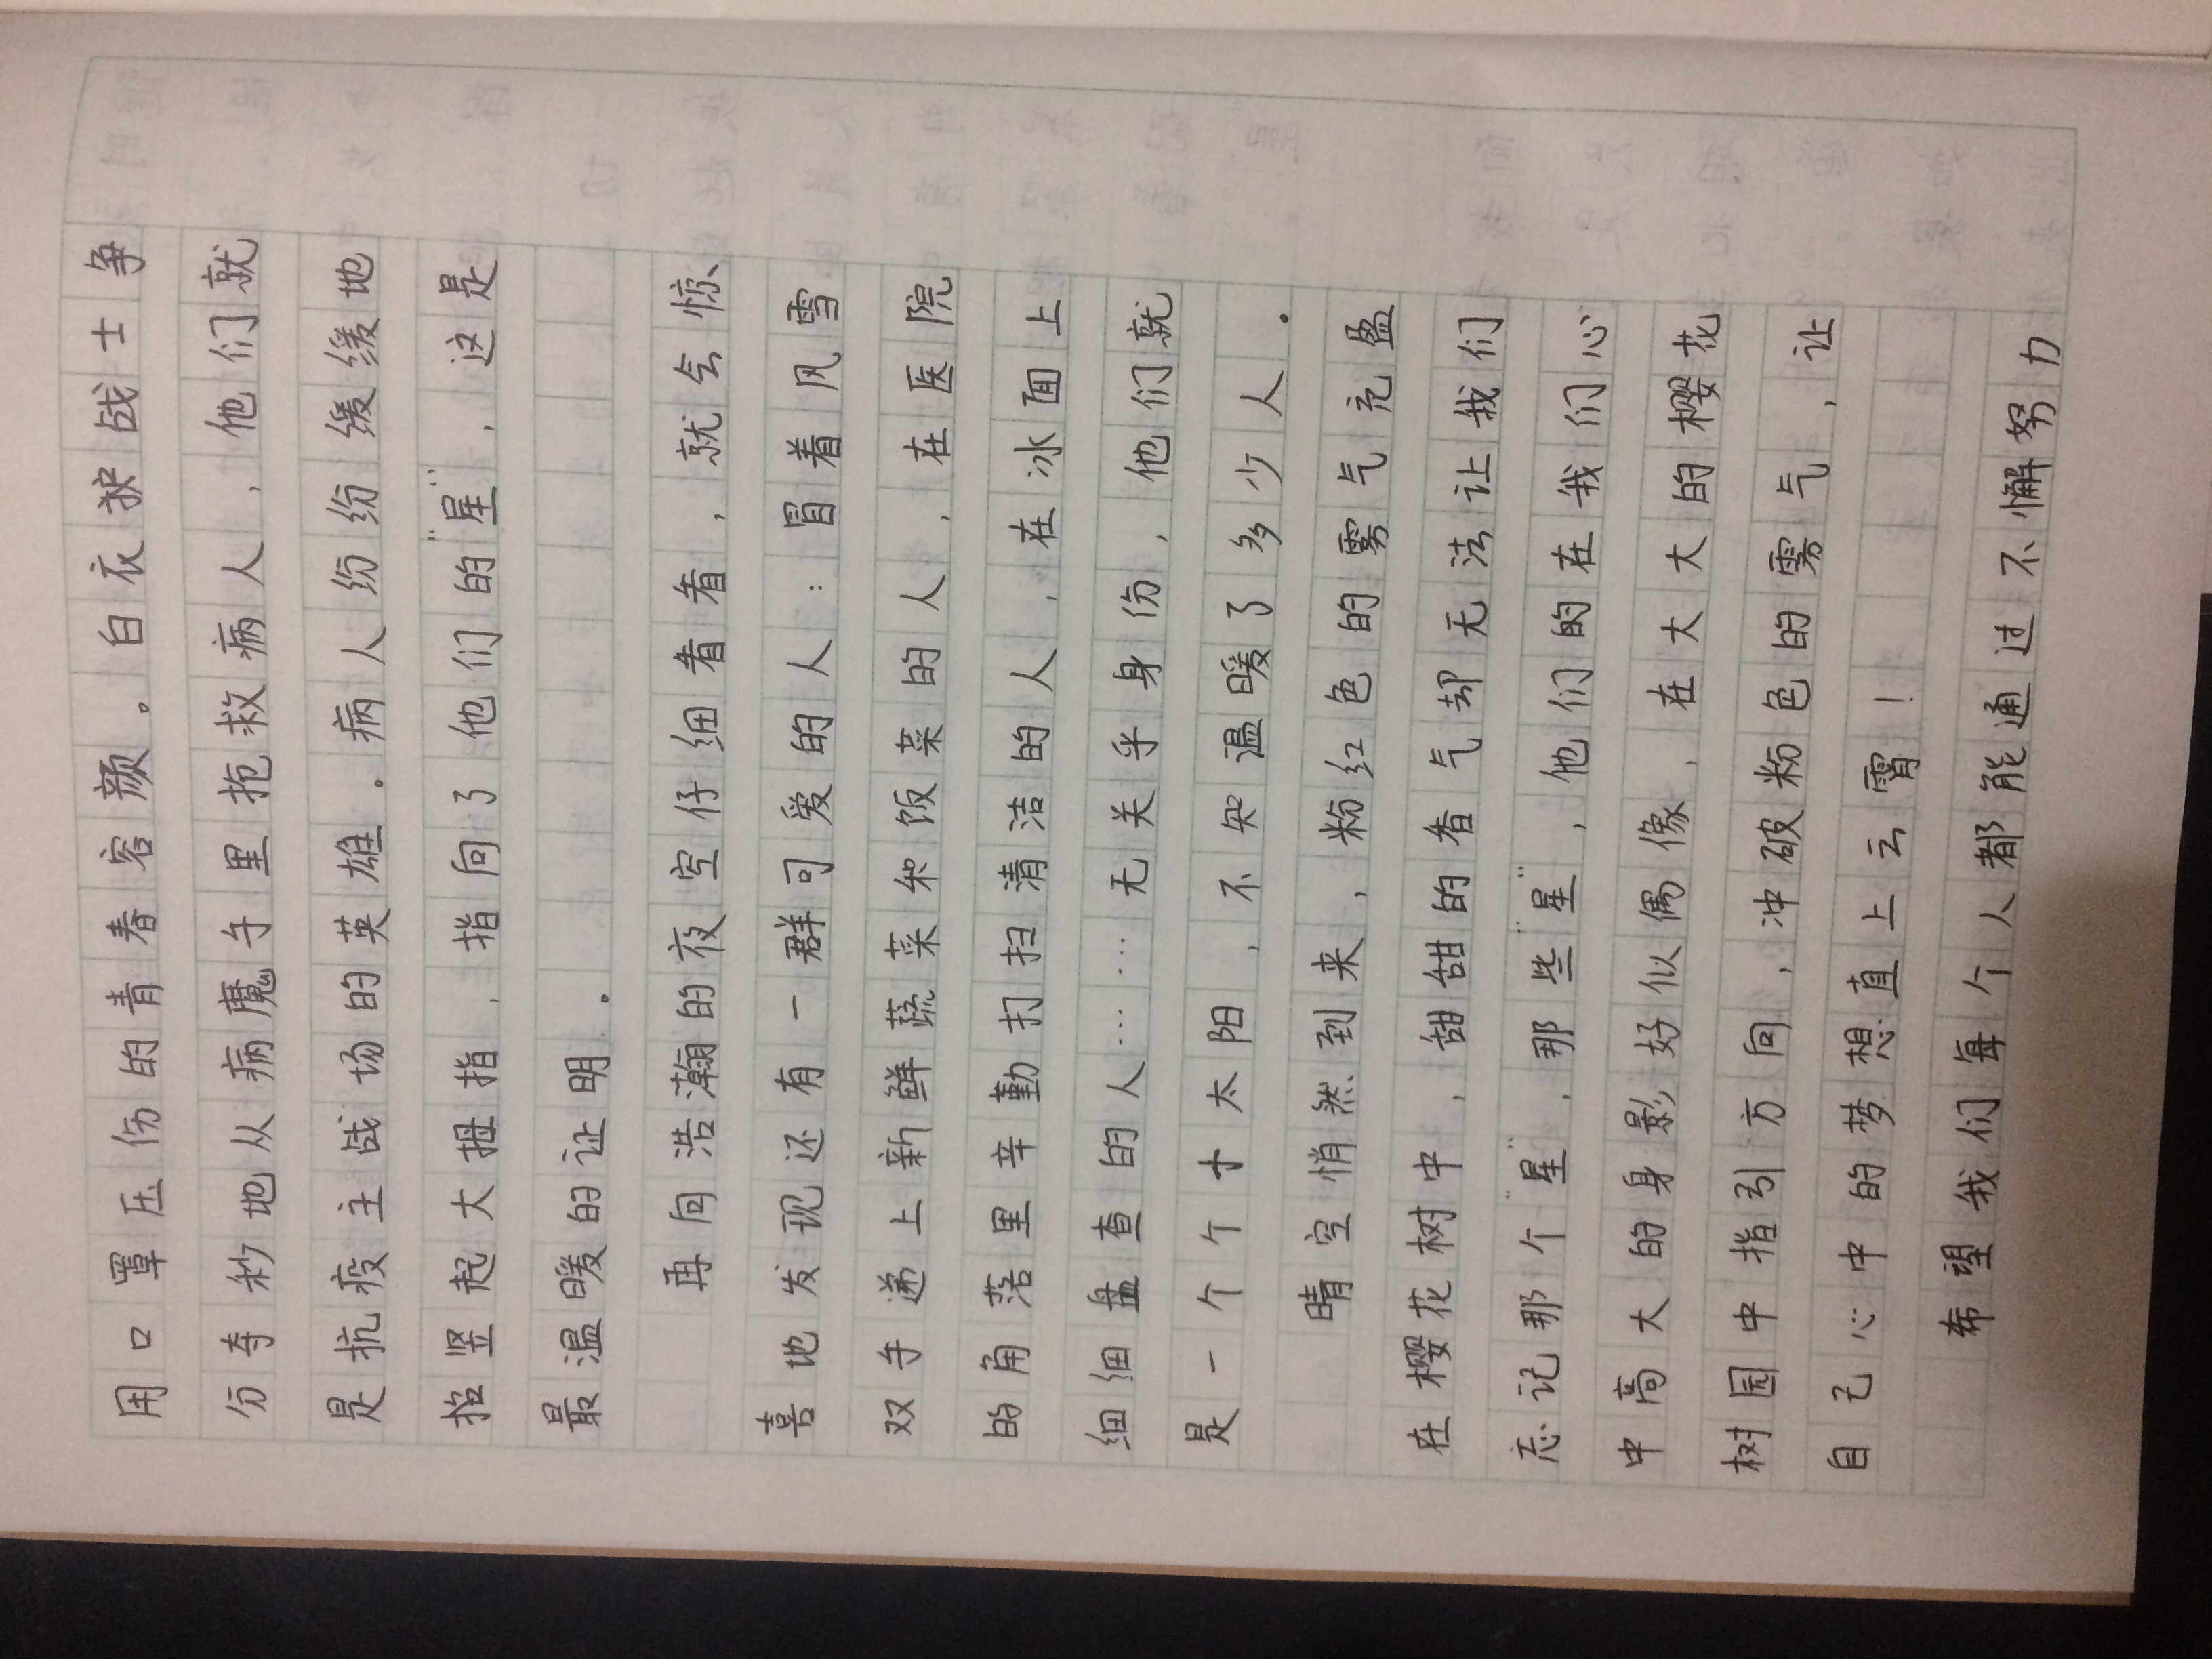 用口罩压伤的青春容颜。白衣护战士争
分夺秒地从病魔手里抢救病人，他们就
是抗疫主战场的英雄。病人纷纷缓缓地
抬竖起大拇指，指向了他们的“星”，这是
最温暖的证明。
再向浩瀚的夜空仔细看看，就会惊
喜地发现还有一群可爱的人：冒着风雪
双手递上新鲜蔬菜和饭菜的人，在医院
的角落里辛勤打扫清洁的人，在冰面上
细细盘查的人……无关乎身份，他们就
是一个个小太阳，不知温暖了多少人。
晴空悄然到来，粉红色的雾气充盈
在樱花树中，甜甜的香气却无法让我们
忘记那个“星”，那些“星”，他们的在我们心
中高大的身影好似偶像，在大大的樱花
树园中指引方向，冲破粉色的雾气，让
自己心中的梦想直上云霄！
希望我们每个人都能通过不懈努力